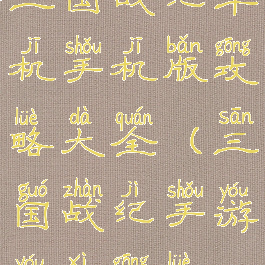 jī shǒu jī bǎn gōng
机手机版攻
lüè dà quán sān
略大全（三
guó zhàn jì shǒu yóu
国战纪手游
yóu xì gōng lüè